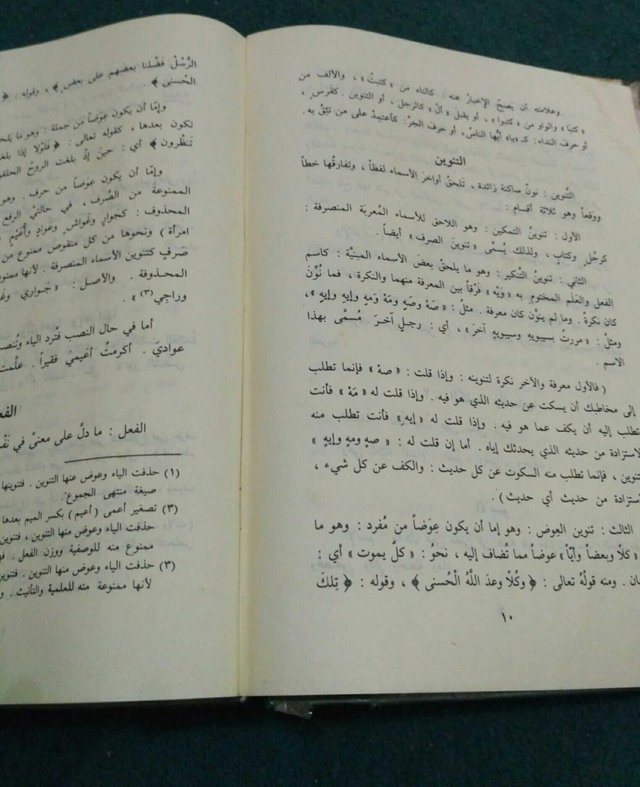 وعلامته أن يَصِحَّ الإخبارُ عنه : كالتاء من « كتبتُ » ، والألف من
« كتبا » والواو من « كتبوا » ، أو يقبل « ألْ » كالرجل ، أو التنوين . كفَرس ،
أو حرف النداء : كـ « يا » أيُّها الناسُ ، أو حرف الجرِّ : كأعتمِدُ على من تثِقُ به .
التنوين
التَّنوين : نونٌ ساكنة زائدة ، تَلحَقُ أواخرَ الأسماء لفظاً ، وتفارقُها خطاً
ووَقفاً وهو ثلاثة أقسام :
الأول : تنوينُ التمكين : وهو اللاحق للأسماء المُعرَبة المنصرفة :
كرجُلٍ وكتابٍ ، ولذلك يُسمَّى « تنوينَ الصرف » أيضاً .
الثاني : تنوينُ التَّنكير : وهو ما يلحقُ بعضَ الأسماء المبنيَّة : كاسم
الفعل والعَلَم المختومِ به « وَيْه » فَرْقاً بين المعرفة منهما والنكرة ، فما نُوِّنَ
كان نكرةً . وما لم ينوَّن كان معرفة . مثلُ : « صَهْ وصَهٍ ومَهْ ومَهٍ وإيهِ وإيهٍ » ،
ومثلُ : « مررت بسيبويهِ وسيبويهٍ آخرَ » ، أي : رجلٍ آخرَ مُسمًّى بهذا
الاسم .
( فالأول معرفة والآخر نكرة لتنوينه : وإذا قلت : « صهْ » فإنما تطلب
إلى مخاطبك أن يسكت عن حديثه الذي هو فيه . وإذا قلت له « مَهْ » فأنت
تطلب إليه أن يكف عما هو فيه . وإذا قلت له « إيهِ » فأنت تطلب منه
الاستزادة من حديثه الذي يحدثك إياه . أما إن قلت له : « صهٍ ومهٍ وإيهٍ »
بالتنوين ، فإنما تطلب منه السكوت عن كل حديث : والكف عن كل شيء ،
والاستزادة من حديث أي حديث ) .
الثالث : تنوين العِوض : وهو إما أن يكون عِوَضاً من مُفرد : وهو ما
« كلًّا وبعضاً وأيًّا » عوضاً مما تُضاف إليه ، نحوُ : « كلٌّ يموت » أي :
ومنه قولُهُ تعالى : ﴿ وكُلًّا وعدَ اللَّهُ الْحُسنى ﴾ ، وقوله : ﴿ تِلكَ
١٠
الرُّسُلُ فضَّلنا بعضهم على بعض ﴾ ، وقوله : ﴿
الحُسنى ﴾ .
وإمَّا أن يكون عِوَضاً من جملة : وهو ما يلحق
تكون بعدها ، كقوله تعالى : ﴿ فلَوْلا إذا بلغت
تنظُرون ﴾ أي : حينَ إذْ بلغت الروحُ الحلقو
وإمّا أن يكون عِوضاً من حرف . وهو
الممنوعةَ من الصَّرف ، في حالتي الرفع
المحذوف : كجوارٍ وغَواشٍ وعَوادٍ وأُعَيْمٍ
امرأة ) ونحوِها من كل منقوص ممنوع من
صَرفٍ كتنوين الأسماء المنصرفة . لأنها ممنوعة
المحذوفة . والأصل : « جَواري
وراجي(٣) » .
أما في حال النصب فتُرد الياء
عواديَ . أكرمتُ أعيميَ فقيراً . علَّمت
الفعل : ما دلَّ على معنىً في
(١) حذفت الياء وعوض عنها التنوين . فتنوينها
صيغة منتهى الجموع .
(٢) تصغير أعمى ( أعيم ) بكسر الميم بعدها
حذفت الياء وعوض منها التنوين ، فتنوين
ممنوع منه للوصفية ووزن الفعل .
(٣) حذفت الياء وعوض منها التنوين . فتنوين
لأنها ممنوعة منه للعلمية والتأنيث .